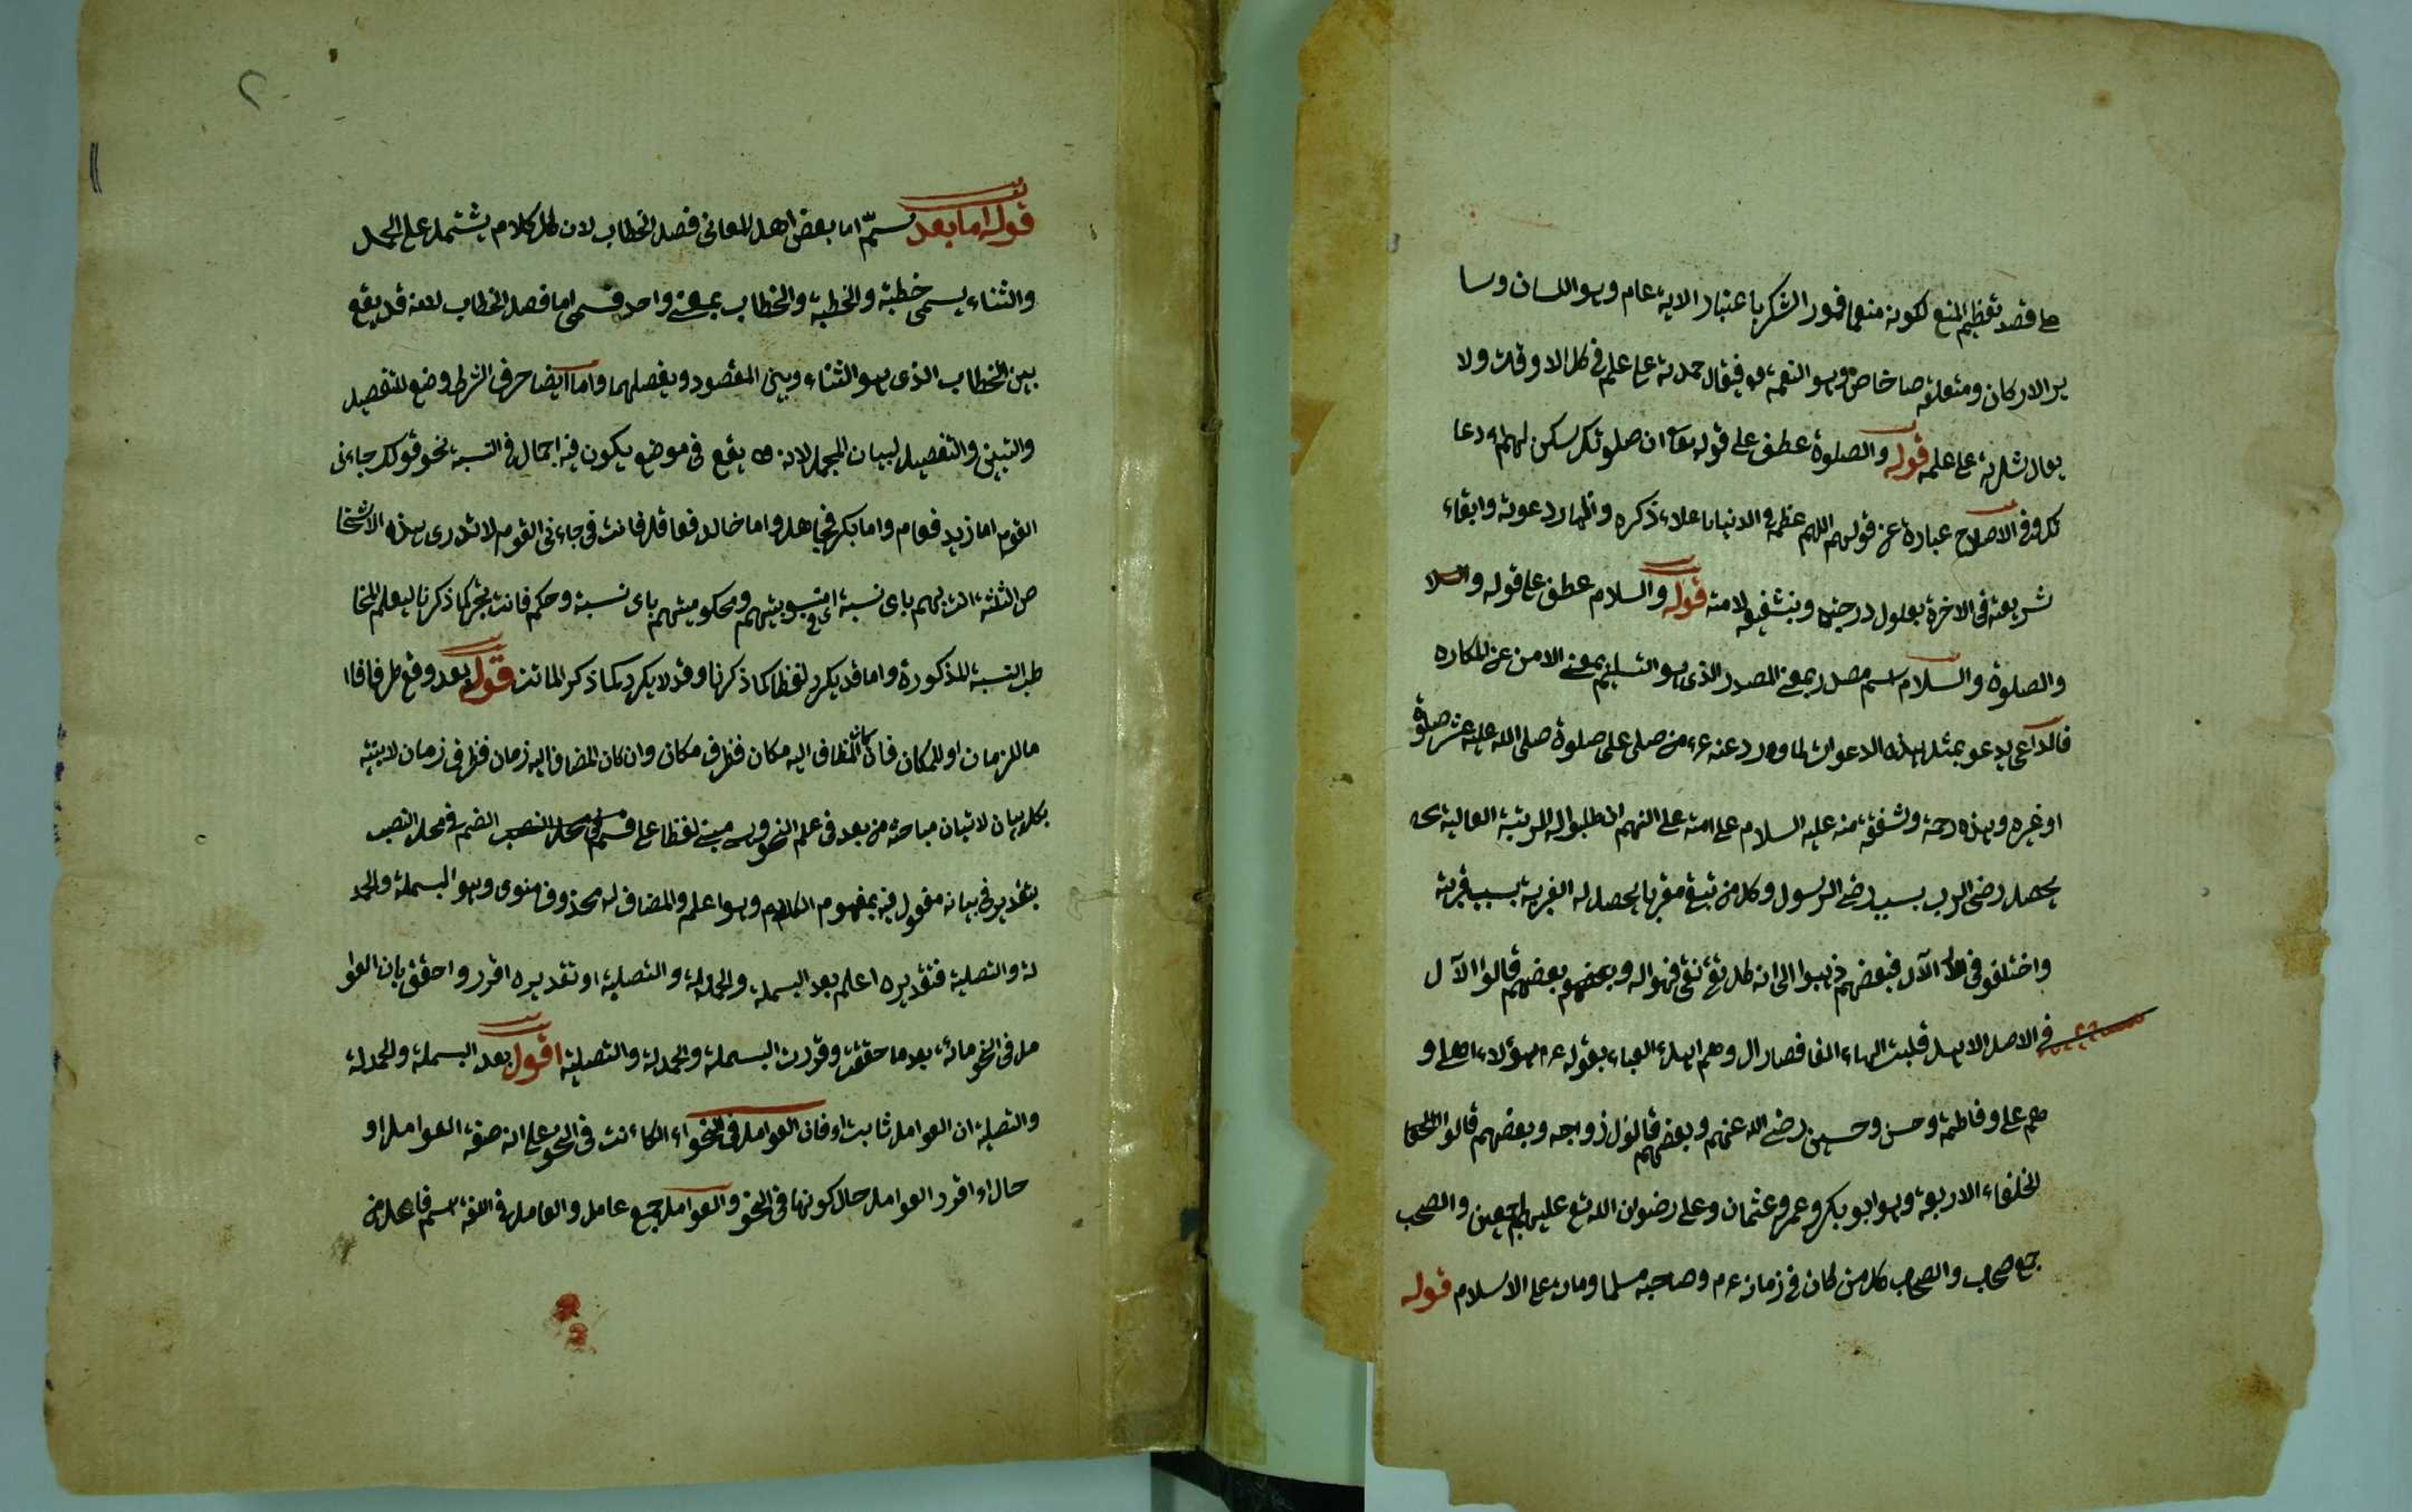 على قصد تعظيم المنعم لكونه منعما فمورد الشكر باعتبار الاية عام وهو اللسان وسا
ير الاركان ومتعلقه خاص وهو النعمة فيقال حمدته على علمه في كل الاوقات ولا
يقال شكرته على علمه قوله والصلوة عطف على قوله تعا ان صلوتك سكن لهم اى دعا
ئك وفي الاصلاح عبارة عن قولهم اللهم عظمه في الدنيا باعلاء ذكره واظهار دعوته وابقاء
شريعته في الاخرة بعلول درجته وبتشفيعه لامته قوله والسلام عطف على قوله والصلا
والصلوة والسلام اسم مصدر بمعنى المصدر الذى هو التسليم بمعنى الامن عن المكاره
فالداعى يدعو بمثل هذه الدعوات لما ورد عنه عم من صلى على صلوة صلى الله عليه عشر صلوة
او غيره وهذه رحمة وشفقة منه عليه السلام على امته على انهم ان طلبوا له المرتبة العالية
يحصل رضى الرب بسبب رضى الرسول وكل من تبع مقربا يحصل له القربة بسبب قربة
واختلفو في الآل فبعضهم ذهبوا الى انه كل تقى نقى فهو اله وبعضهم قالوا الآل
في الاصل الاهل قلبت الهاء الفا فصار ال وهم اهل العباء بقوله عم هؤلاء اهلى و
هم على وفاطمة وحسن وحسين رضى الله عنهم وبعضهم قالوا ازواجه وبعضهم قالوا
الخلفاء الاربعة وهو ابو بكر وعمر وعثمان وعلى رضوان الله تع عليهم اجمعين والصحب
جمع صحاب والصحاب كل من كان في زمانه عم وصاحبه مسلما ومات على الاسلام قوله
قوله اما بعد سمى اما بعض اهل المعانى فصل الخطاب لان كل كلام يشتمل على الحمد
والثناء يسمى خطبة والخطبة والخطاب بمعنى واحد فسمى اما فصل الخطاب لانه قد يقع
بين الخطاب الذى هو الثناء وبين المقصود ويفصلهما واما ايضا حرف الشرط وضع للتفصيل
والتبيين والتفصيل لبيان المجمل لانه يقع في موضع يكون فيه اجمال في النسبة نحو قولك جاءنى
القوم اما زيد فعام واما بكر فجاهل واما خالد فعاقل فانت في جاءنى القوم لا تدرى هذه الاشخا
ص الثلثة انت بهم باى نسبة اى في منسوبيتهم ومحكوميتهم باى نسبة وحكم فانت تجئ كما ذكرنا ليعلم المخا
طب النسبة المذكورة واما قد يكرر لفظا كما ذكرنا وقد لا يكرر كما ذكر الماتن قوله بعد وقع ظرفا
ما للزمان او للمكان فان كان المضاف اليه مكان فظرف مكان وان كان المضاف اليه زمان فظرف زمان
مباحثه من بعد في علم النحو مبنى لفظا على الضم في محل النصب
بتقدير في بيانه مفعول فيه بمفهوم الكلام وهو اعلم والمضاف له محذوف منوى وهو البسملة والحمد
لة والتصلية فتقديره اعلم بعد البسملة والحمدلة والتصلية او تقديره اقرر واحقق بان العوا
مل في النحو مائة بعد ما حققت وقررت البسملة والحمدلة والتصلية اقول بعد البسملة والحمدلة
والتصلية ان العوامل ثابت او فان العوامل في النحو اى الكائنت في النحو على انه صفة العوامل او
حال اى اقرر العوامل حال كونها في النحو والعوامل جمع عامل والعامل في اللغة اسم فاعل من